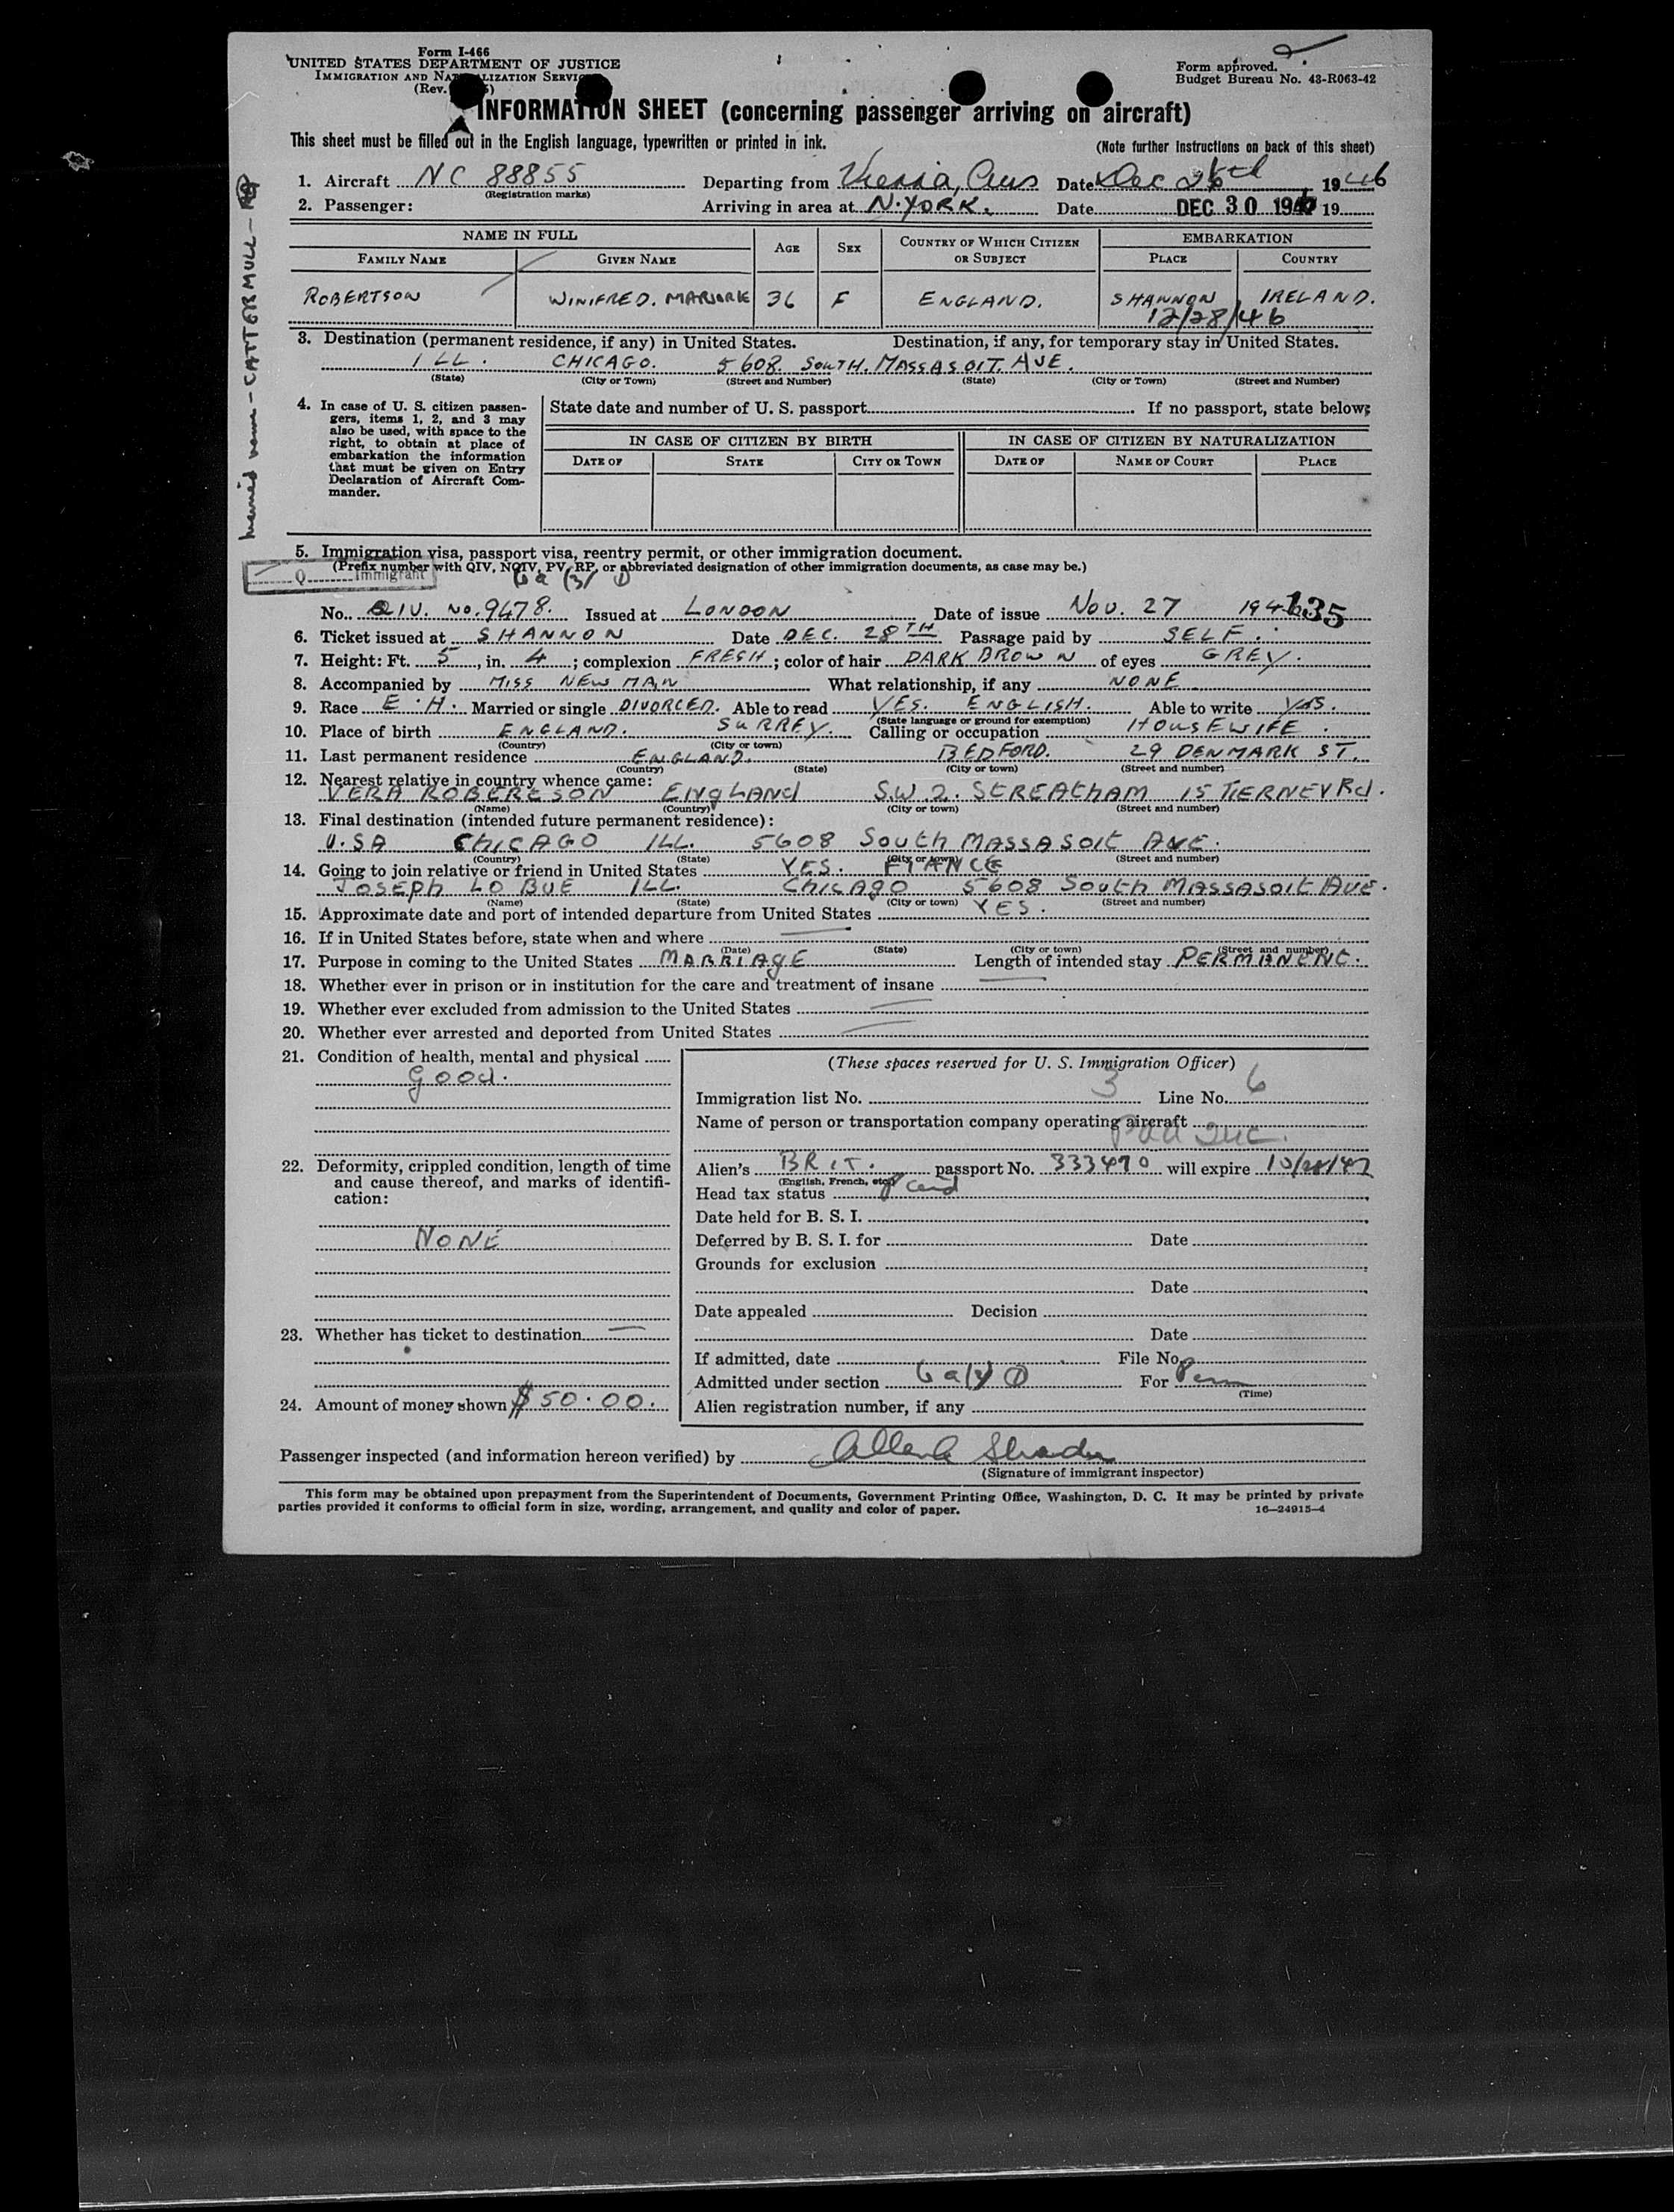 Form I-466
UNITED STATES DEPARTMENT OF JUSTICE
IMMIGRATION AND NATURALIZATION SERVICE
(Rev.
Form approved.
Budget Bureau No. 43-R063-42
INFORMATION SHEET (concerning passenger arriving on aircraft)
This sheet must be filled out in the English language, typewritten or printed in ink.
(Note further instructions on back of this sheet)
1. Aircraft NC 88855 Departing from Vienna, Aus Date Dec 1946
(Registration marks)
2. Passenger: Arriving in area at N. YORK. Date DEC 30 1946 19
NAME IN FULL AGE SEX COUNTRY OF WHICH CITIZEN OR SUBJECT EMBARKATION
FAMILY NAME GIVEN NAME PLACE COUNTRY
ROBERTSON WINIFRED. MARJORIE 36 F ENGLAND. SHANNON IRELAND.
12/28/46
married name - CATTERMULL -
3. Destination (permanent residence, if any) in United States. Destination, if any, for temporary stay in United States.
ILL. CHICAGO. 5608. SOUTH. MASSASOIT. AVE.
(State) (City or Town) (Street and Number) (State) (City or Town) (Street and Number)
4. In case of U. S. citizen passengers, items 1, 2, and 3 may also be used, with space to the right, to obtain at place of embarkation the information that must be given on Entry Declaration of Aircraft Commander.
State date and number of U. S. passport If no passport, state below:
IN CASE OF CITIZEN BY BIRTH IN CASE OF CITIZEN BY NATURALIZATION
DATE OF STATE CITY OR TOWN DATE OF NAME OF COURT PLACE
5. Immigration visa, passport visa, reentry permit, or other immigration document.
(Prefix number with QIV, NQIV, PV, RP, or abbreviated designation of other immigration documents, as case may be.)
Q Immigrant
6a (3) 1
No. QIV. NO. 9478. Issued at LONDON Date of issue NOV. 27 1946
135
6. Ticket issued at SHANNON Date DEC. 28TH Passage paid by SELF.
7. Height: Ft. 5, in. 4; complexion FRESH; color of hair DARK BROWN of eyes GREY.
8. Accompanied by MISS NEWMAN What relationship, if any NONE
9. Race E.H. Married or single DIVORCED. Able to read YES. ENGLISH. Able to write YES.
(State language or ground for exemption)
10. Place of birth ENGLAND. SURREY. Calling or occupation HOUSEWIFE.
(Country) (City or town)
11. Last permanent residence ENGLAND. BEDFORD. 29 DENMARK ST.
(Country) (State) (City or town) (Street and number)
12. Nearest relative in country whence came:
VERA ROBERTSON ENGLAND S.W 2. STREATHAM 15 TIERNEY Rd.
(Name) (Country) (City or town) (Street and number)
13. Final destination (intended future permanent residence):
U.SA CHICAGO ILL. 5608 South MASSASOIT AVE.
(Country) (State) (City or town) (Street and number)
14. Going to join relative or friend in United States YES. FIANCE
JOSEPH LO BUE ILL. CHICAGO 5608 South MASSASOIT AVE.
(Name) (State) (City or town) (Street and number)
15. Approximate date and port of intended departure from United States YES.
16. If in United States before, state when and where
(Date) (State) (City or town) (Street and number)
17. Purpose in coming to the United States MARRIAGE Length of intended stay PERMANENT.
18. Whether ever in prison or in institution for the care and treatment of insane
19. Whether ever excluded from admission to the United States
20. Whether ever arrested and deported from United States
21. Condition of health, mental and physical
Good.
22. Deformity, crippled condition, length of time and cause thereof, and marks of identification:
NONE
23. Whether has ticket to destination
24. Amount of money shown $50.00.
(These spaces reserved for U. S. Immigration Officer)
Immigration list No. 3 Line No. 6
Name of person or transportation company operating aircraft
Paa Inc.
Alien's BRIT. passport No. 333470 will expire
(English, French, etc.)
Head tax status
Date held for B. S. I.
Deferred by B. S. I. for Date
Grounds for exclusion
Date
Date appealed Decision
Date
If admitted, date File No.
Admitted under section 6a(3) 1 For Perm
(Time)
Alien registration number, if any
Passenger inspected (and information hereon verified) by
(Signature of immigrant inspector)
This form may be obtained upon prepayment from the Superintendent of Documents, Government Printing Office, Washington, D. C. It may be printed by private
parties provided it conforms to official form in size, wording, arrangement, and quality and color of paper.
16—24915-4